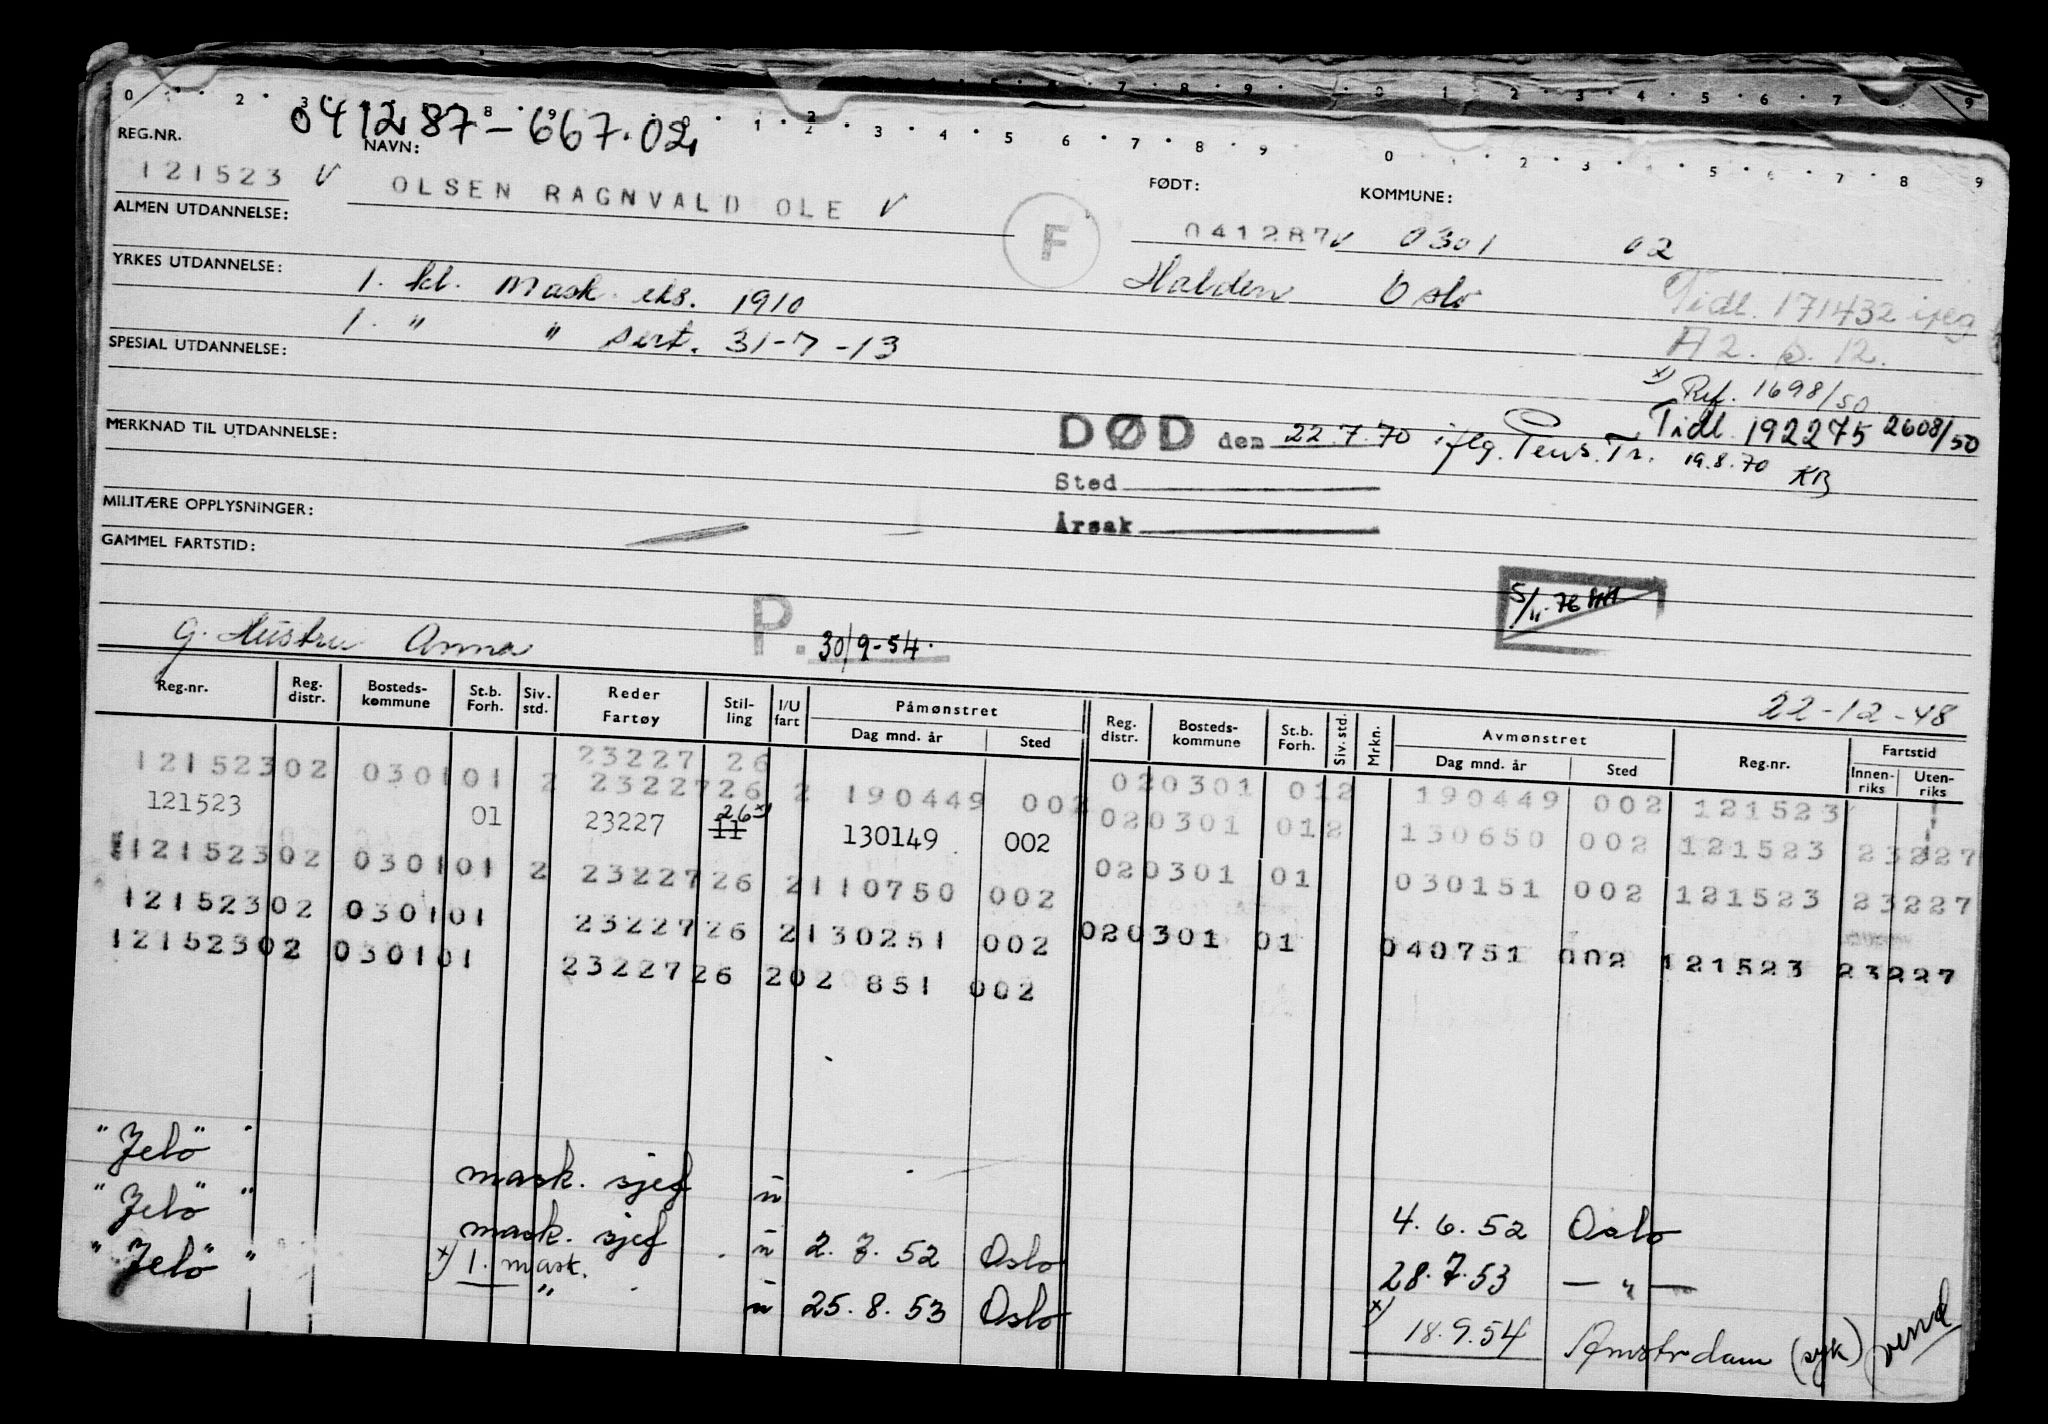 041287-667.02
REG.NR. NAVN: FØDT: KOMMUNE:
121523 V OLSEN RAGNVALD OLE V F 041287 V 0301 02
ALMEN UTDANNELSE:
Halden Oslo
YRKES UTDANNELSE: 1. kl. Mask. eks. 1910
Tidl. 171432 iflg
1. " " sert. 31-7-13
A2. s. 12.
SPESIAL UTDANNELSE:
x) Ref. 1698/50
Tidl. 192275 2608/50
MERKNAD TIL UTDANNELSE:
DØD den 22.7.70 iflg. Pens. Tr. 19.8.70 KB
Sted
MILITÆRE OPPLYSNINGER:
Årsak
GAMMEL FARTSTID:
5/11-76
P. 30/9-54.
G. Hustru Anna
22-12-48
Reg.nr. Reg. distr. Bosteds-kommune St.b. Forh. Siv. std. Reder Fartøy Stil-ling I/U fart Påmønstret Dag mnd. år Sted Reg. distr. Bosteds-kommune St.b. Forh. Siv. std. Mrkn. Avmønstret Dag mnd. år Sted Reg.nr. Fartstid Innen-riks Uten-riks
23227 26
121523 02 0301 01 2 23227 26 2 190449 002 02 0301 01 2 190449 002 121523
121523 01 23227 11 26 x) 130149 002 02 0301 01 2 130650 002 121523 23227
121523 02 0301 01 2 23227 26 2 110750 002 02 0301 01 030151 002 121523 23227
121523 02 0301 01 23227 26 2 130251 002 02 0301 01 040751 002 121523 23227
121523 02 0301 01 23227 26 2 02 851 002
"Jelö" mask. sjef u 4.6.52 Oslo
"Jelö" mask. sjef u 2.7.52 Oslo 28.7.53 — " —
"Jelö" x) 1. mask. " u 25.8.53 Oslo x) 18.9.54 Amstrdam (syk) vend